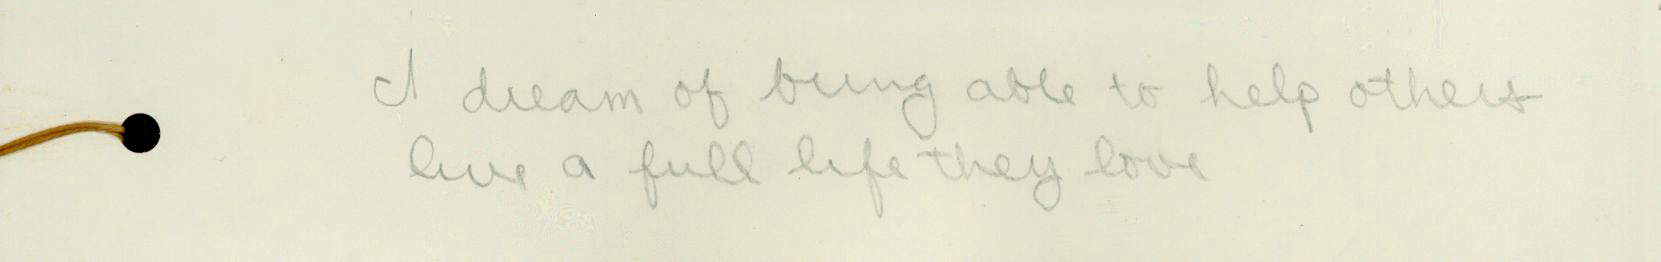 I dream of being able to help others
live a full life they love